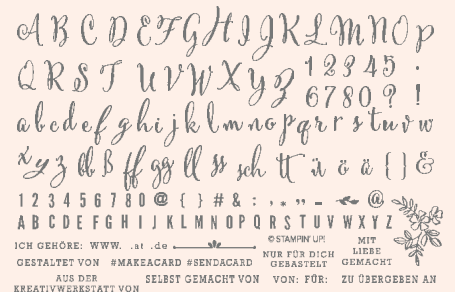 A B C D E F G H I J K L M N O P
Q R S T U V W X Y Z 1 2 3 4 5 .
6 7 8 0 ? !
a b c d e f g h i j k l m n o p q r r s t u v w
x y z ß ff gg ll ss sch tt ä ö ä { } &
1 2 3 4 5 6 7 8 0 @ { } # & : . * „ – @
A B C D E F G H I J K L M N O P Q R S T U V W X Y Z
ICH GEHÖRE: WWW. .at .de
© STAMPIN' UP!
GESTALTET VON #MAKEACARD #SENDACARD
NUR FÜR DICH
GEBASTELT
MIT
LIEBE
GEMACHT
AUS DER
KREATIVWERKSTATT VON
SELBST GEMACHT VON
VON: FÜR:
ZU ÜBERGEBEN AN